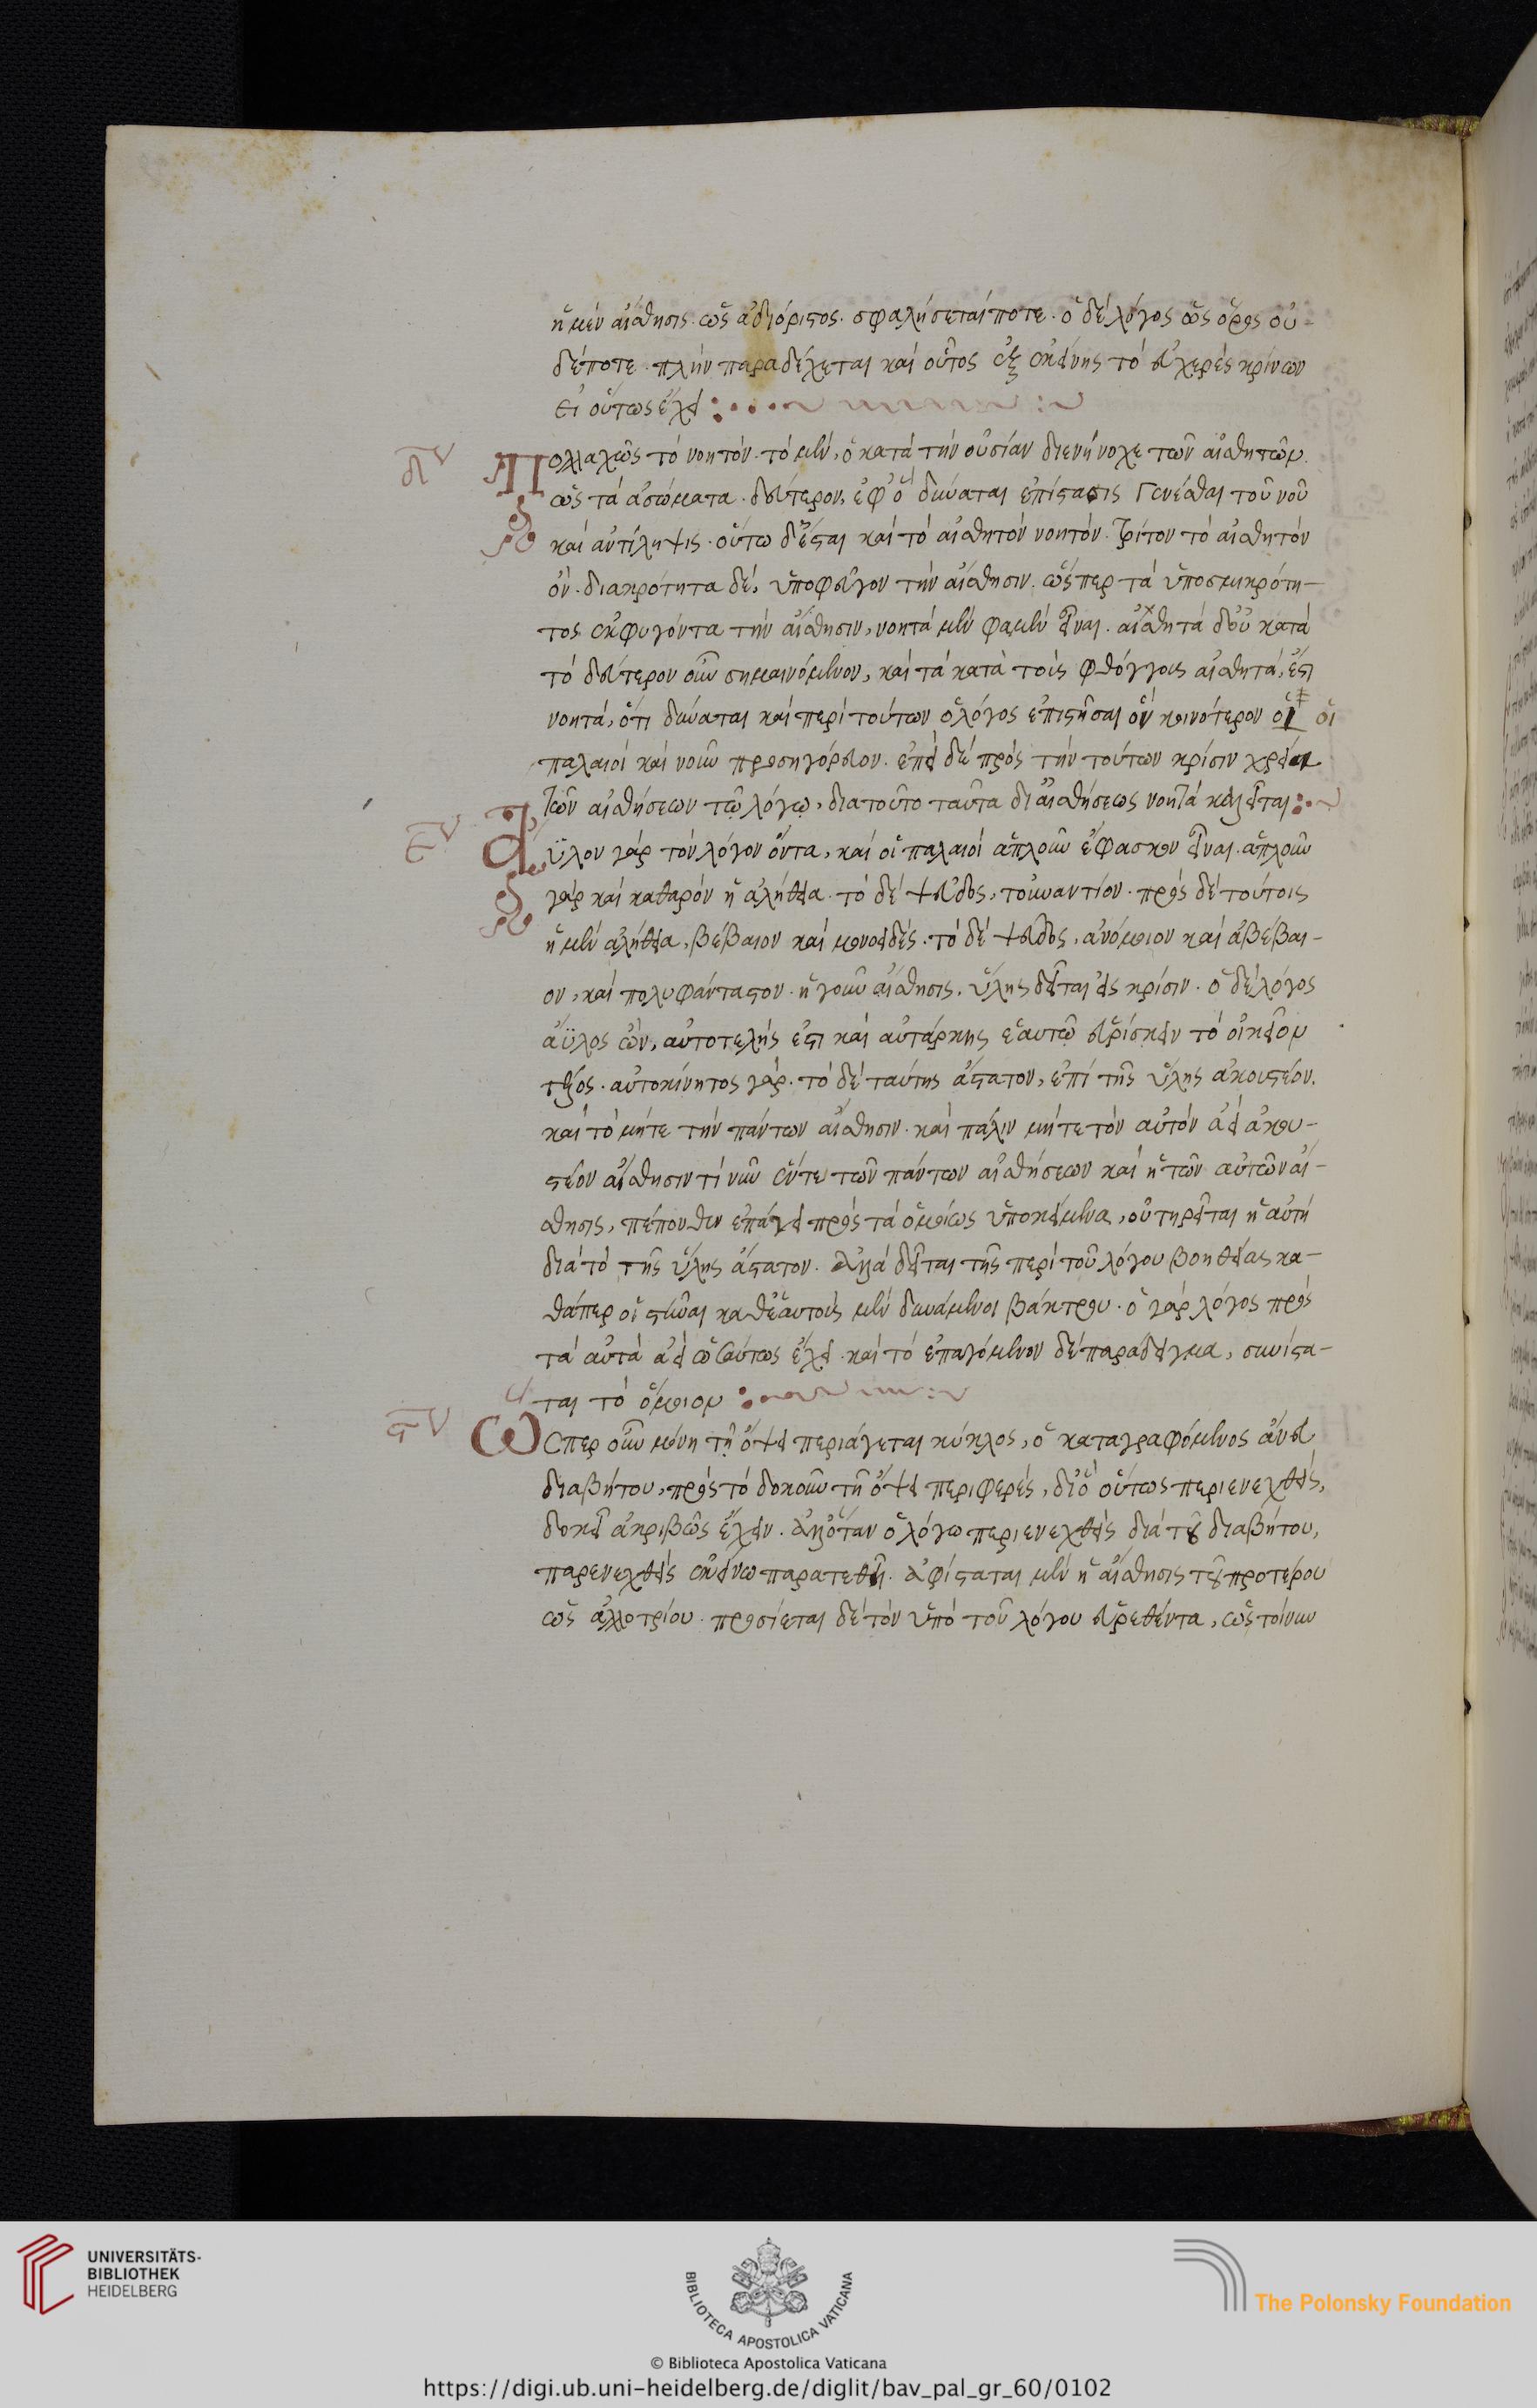 ἡ μὲν αἴσθησις ὡς ἀδιόριστος. σφαλήσεταί ποτε. ὁ δὲ λόγος ὡς ὅρος οὐ-
δέποτε. πλὴν παραδέχεται καὶ οὗτος ἐξ ἐκείνης τὸ εὐχερὲς κρίνων
εἰ οὕτως ἔχει
δον
Πολλαχῶς τὸ νοητόν. τὸ μὲν, ὃ κατὰ τὴν οὐσίαν διενήνοχε τῶν αἰσθητῶν.
ὡς τὰ ἀσώματα. δεύτερον, ἐφ' ὃ δύναται ἐπίστασις γενέσθαι τοῦ νοῦ
καὶ ἀντίληψις. οὕτω δ' ἔσται καὶ τὸ αἰσθητὸν νοητόν. τρίτον τὸ αἰσθητὸν
ὂν. διακρότητα δὲ, ὑποφεῦγον τὴν αἴσθησιν. ὥσπερ τὰ ὑποσμικρότη-
τος ἐκφυγόντα τὴν αἴσθησιν, νοητὰ μὲν φαμὲν εἶναι. αἰσθητὰ δ' οὐ κατὰ
τὸ δεύτερον οὖν σημαινόμενον, καὶ τὰ κατὰ τοὺς φθόγγους αἰσθητά, ἔστι
νοητά, ὅτι δύναται καὶ περὶ τούτων ὁ λόγος ἐπιστῆσαι ὃν κοινότερον οἱ οἱ
παλαιοὶ καὶ νοῦν προσηγόρευον. ἐπεὶ δὲ πρὸς τὴν τούτων κρίσιν χρεία
τῶν αἰσθήσεων τῷ λόγῳ, διατοῦτο ταῦτα δι' αἰσθήσεως νοητὰ καλεῖται
εον
Ἄϋλον γὰρ τὸν λόγον ὄντα, καὶ οἱ παλαιοὶ ἁπλοῦν ἔφασκον εἶναι. ἁπλοῦν
γὰρ καὶ καθαρὸν ἡ ἀλήθεια. τὸ δὲ ψεῦδος, τοὐναντίον. πρὸς δὲ τούτοις
ἡ μὲν ἀλήθεια, βέβαιον καὶ μονοειδές. τὸ δὲ ψεῦδος, ἀνόμοιον καὶ ἀβέβαι-
ον, καὶ πολυφάνταστον. ἡ γοῦν αἴσθησις, ὕλης δεῖται εἰς κρίσιν. ὁ δὲ λόγος
ἄϋλος ὢν, αὐτοτελής ἐστι καὶ αὐτάρκης ἑαυτῷ εὑρίσκειν τὸ οἰκεῖον
τέλος. αὐτοκίνητος γάρ. τὸ δὲ ταύτης ἄστατον, ἐπὶ τῆς ὕλης ἀκουστέον.
καὶ τὸ μήτε τὴν πάντων αἴσθησιν. καὶ πάλιν μήτε τὸν αὐτὸν ἀεὶ ἀκου-
στέον αἴσθησιν τί νῦν οὔτε τῶν πάντων αἰσθήσεων καὶ ἡ τῶν αὐτῶν αἴ-
σθησις, πέπονθεν ἐπάγει πρὸς τὰ ὁμοίως ὑποκείμενα, οὐ τηρεῖται ἡ αὐτὴ
διὰ τὸ τῆς ὕλης ἄστατον. ἀλλὰ δεῖται τῆς περὶ τοῦ λόγου βοηθείας κα-
θάπερ οἱ στῆναι καθ' ἑαυτοὺς μὲν δυνάμενοι βάκτρου. ὁ γὰρ λόγος πρὸς
τὰ αὐτὰ ἀεὶ ὡσαύτως ἔχει. καὶ τὸ ἐπαγόμενον δὲ παράδειγμα, συνίστα-
ται τὸ ὅμοιον
ςον
Ὥσπερ οὖν μόνῃ τῇ ὄψει περιάγεται κύκλος, ὁ καταγραφόμενος ἄνευ
διαβήτου, πρὸς τὸ δοκοῦν τῇ ὄψει περιφερὲς, διὸ οὕτως περιενεχθεὶς,
δοκεῖ ἀκριβῶς ἔχειν. ἀλλ' ὅταν ὁ λόγῳ περιενεχθεὶς διὰ τοῦ διαβήτου,
παρενεχθεὶς ἐκείνῳ παρατεθῇ. ἀφίσταται μὲν ἡ αἴσθησις τοῦ προτέρου
ὡς ἀλλοτρίου. προσίεται δὲ τὸν ὑπὸ τοῦ λόγου εὑρεθέντα, ὡς τοίνυν
UNIVERSITÄTS-
BIBLIOTHEK
HEIDELBERG
BIBLIOTECA APOSTOLICA VATICANA
The Polonsky Foundation
© Biblioteca Apostolica Vaticana
https://digi.ub.uni-heidelberg.de/diglit/bav_pal_gr_60/0102